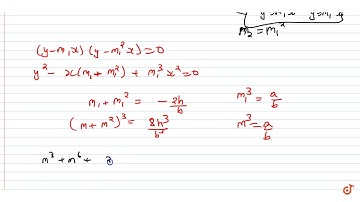 m₂ = m₁²
(y-m₁x) (y-m₁²x) = 0
y² - x(m₁+m₁²) + m₁³x² = 0
m₁ + m₁² = -2h/b m₁³ = a/b
(m+m²)³ = 8h³/b³ m³ = a/b
m³ + m⁶ +